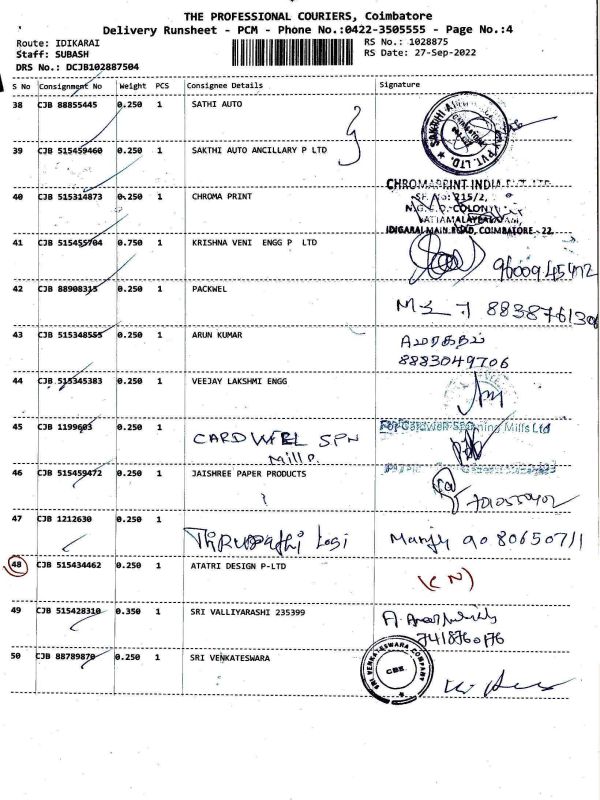 THE PROFESSIONAL COURIERS, Coimbatore
Delivery Runsheet - PCM - Phone No.:0422-3505555 - Page No.:4
Route: IDIKARAI RS No.: 1028875
Staff: SUBASH RS Date: 27-Sep-2022
DRS No.: DCJB102887504
S No Consignment No Weight PCS Consignee Details Signature
38 CJB 88855445 0.250 1 SATHI AUTO
39 CJB 515459460 0.250 1 SAKTHI AUTO ANCILLARY P LTD
CHROMAPRINT INDIA PVT. LTD.
40 CJB 515314873 0.250 1 CHROMA PRINT SF. No: 215/2,
COLONY
IDIGARAI MAIN ROAD, COIMBATORE - 22.
41 CJB 515455704 0.750 1 KRISHNA VENI ENGG P LTD
42 CJB 88908315 0.250 1 PACKWEL
43 CJB 515348555 0.250 1 ARUN KUMAR
8883049706
44 CJB 515345383 0.250 1 VEEJAY LAKSHMI ENGG
45 CJB 1199603 0.250 1 For Cardwell Spinning Mills Ltd
CARDWEL SPN
Mills.
46 CJB 515459472 0.250 1 JAISHREE PAPER PRODUCTS
47 CJB 1212630 0.250 1
Thiruppathi Logi Manju 9080650711
48 CJB 515434462 0.250 1 ATATRI DESIGN P-LTD
(CN)
49 CJB 515428310 0.350 1 SRI VALLIYARASHI 235399
7418760176
50 CJB 88789870 0.250 1 SRI VENKATESWARA
SRI VENKATESWARA COMPANY
CBE.